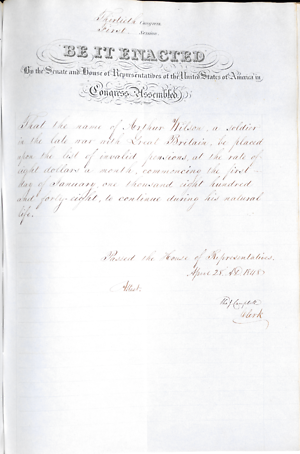 Thirtieth Congress
First Session
BE IT ENACTED
By the Senate and House of Representatives of the United States of America in
Congress Assembled,
That the name of Arthur Wilson, a soldier
in the late war with Great Britain, be placed
upon the list of invalid pensions, at the rate of
eight dollars a month, commencing the first
day of January, one thousand eight hundred
and forty-eight, to continue during his natural
life.
Passed the House of Representatives
April 28. 1848
Attest.
Clerk